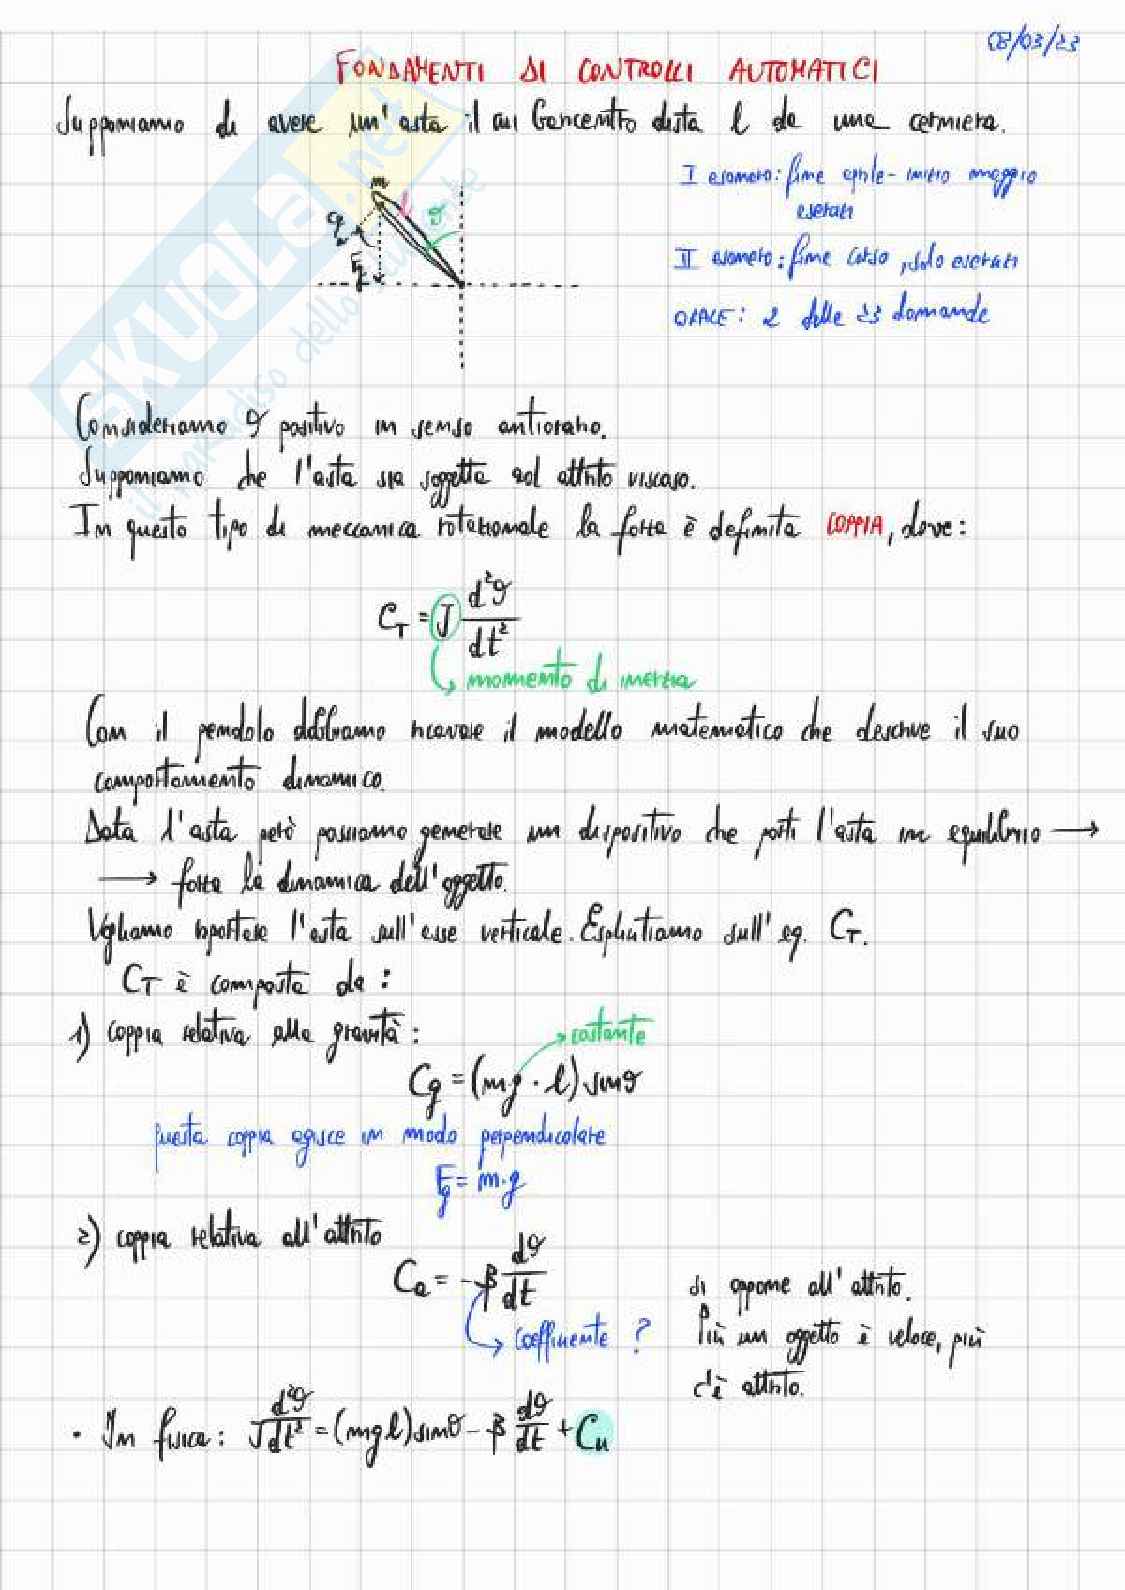 08/03/23
FONDAMENTI DI CONTROLLI AUTOMATICI
Supponiamo di avere un'asta il cui baricentro dista l da una cerniera.
m
l
θ
Cg
Fg
I esonero: fine aprile - inizio maggio
esercizi
II esonero: fine corso, solo esercizi
ORALE: 2 delle 23 domande
Consideriamo θ positivo in senso antiorario.
Supponiamo che l'asta sia soggetta ad attrito viscoso.
In questo tipo di meccanica rotazionale la forza è definita COPPIA, dove:
C_T = J d²θ/dt²
momento di inerzia
Con il pendolo dobbiamo ricavare il modello matematico che descrive il suo
comportamento dinamico.
Data l'asta però possiamo generare un dispositivo che porti l'asta in equilibrio →
→ forza la dinamica dell'oggetto.
Vogliamo riportare l'asta sull'asse verticale. Esplicitiamo sull'eq. C_T.
C_T è composta da:
1) coppia relativa alla gravità:
costante
Cg = (mg · l) sinθ
questa coppia agisce in modo perpendicolare
Fg = m·g
2) coppia relativa all'attrito
Ca = -β dθ/dt
coefficiente ?
si oppone all'attrito.
Più un oggetto è veloce, più
c'è attrito.
• In fisica: J d²θ/dt² = (mgl) sinθ - β dθ/dt + Cu
SKUOLA.net
il paradiso dello studente